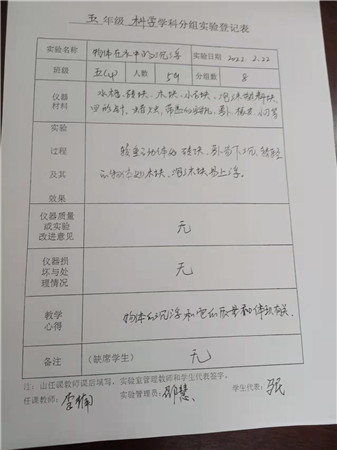 五年级 科学学科分组实验登记表
实验名称 物体在水中的沉浮 实验日期 2022.2.22
班级 五(4) 人数 59 分组数 8
仪器 水槽、砖块、木块、小石块、泡沫块
材料 回形针、蜡烛、
实验
过程 较重的物体如砖块、易下沉,较轻
及其 的物体如木块、泡沫块易上浮。
效果
仪器质量
或实验 无
改进意见
仪器损
坏与处 无
理情况
教学 物体的沉浮和它的质量和体积有关。
心得
备注 (缺席学生) 无
注:由任课教师如实填写,实验室管理教师和学生代表签字。
任课教师: 实验管理员: 学生代表: